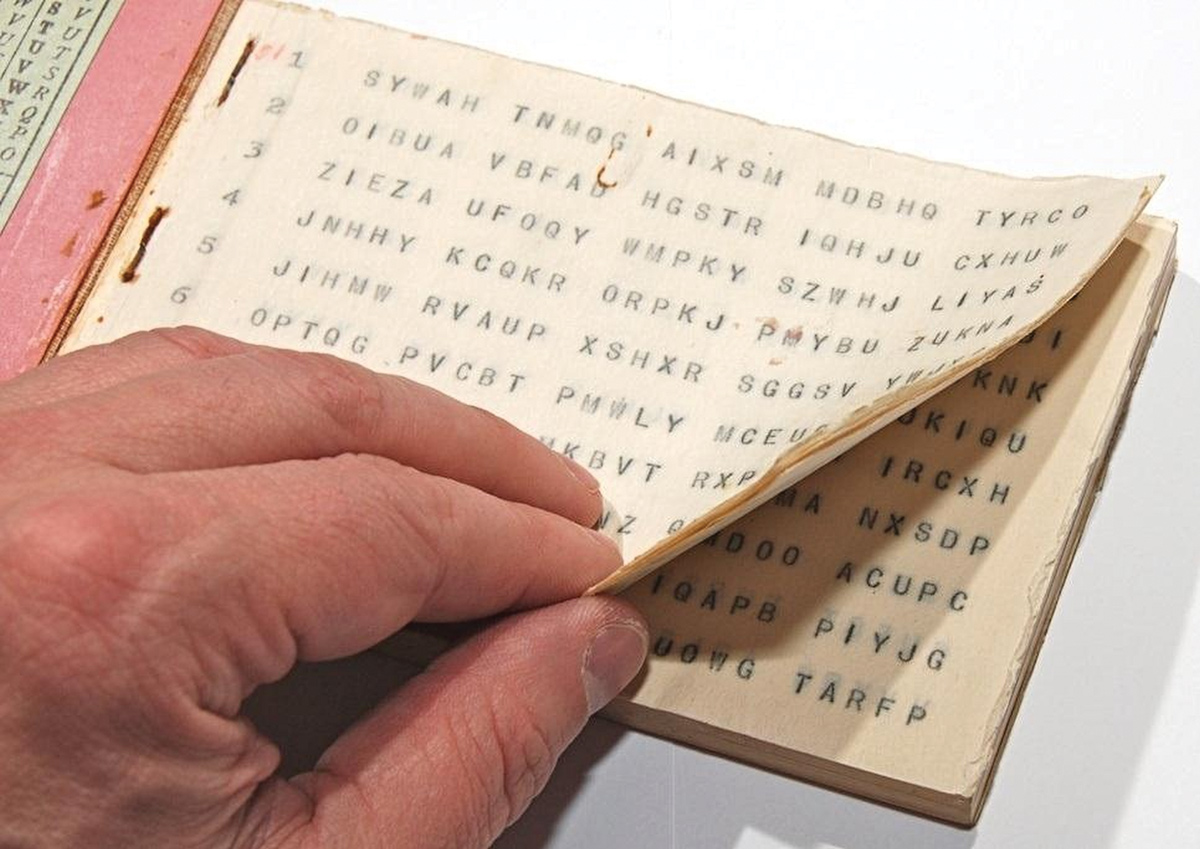 1 SYWAH TNMQG AIXSM MDBHQ TYRCO
2 OIBUA VBFAD HGSTR IQHJU CXHUW
3 ZIEZA UFOQY WMPKY SZWHJ LIYAS
4 JNHHY KCQKR ORPKJ PMYBU ZUKNA
5 JIHMW RVAUP XSHXR SGGSV
6 OPTQG PVCBT PMWLY
KBVT RXP
NZ
KNK
UKIQU
IRCXH
MA NXSDP
DOO ACUPC
IQAPB PIYJG
UOWG TARFP